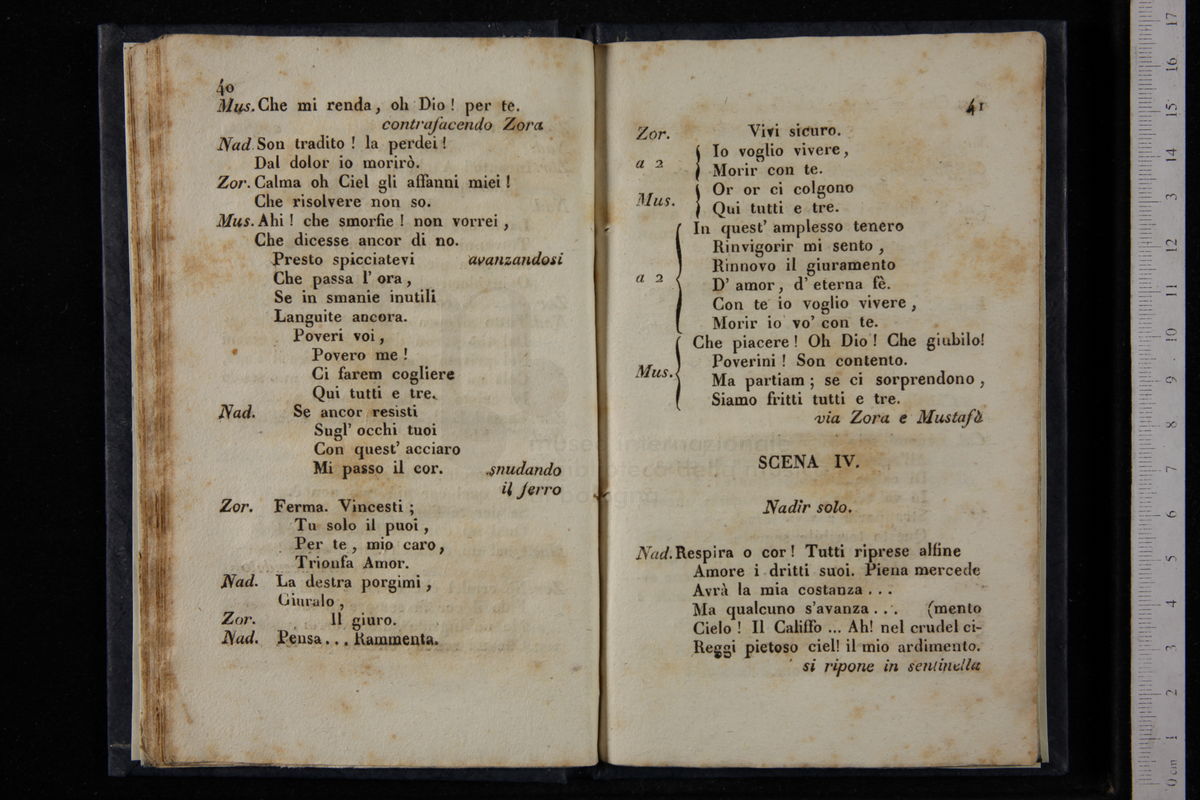 40
Mus. Che mi renda, oh Dio! per te.
contrafacendo Zora
Nad. Son tradito! la perdei!
Dal dolor io morirò.
Zor. Calma oh Ciel gli affanni miei!
Che risolvere non so.
Mus. Ahi! che smorfie! non vorrei,
Che dicesse ancor di no.
Presto spicciatevi avanzandosi
Che passa l'ora,
Se in smanie inutili
Languite ancora.
Poveri voi,
Povero me!
Ci farem cogliere
Qui tutti e tre.
Nad. Se ancor resisti
Sugl' occhi tuoi
Con quest' acciaro
Mi passo il cor. snudando
il ferro
Zor. Ferma. Vincesti;
Tu solo il puoi,
Per te, mio caro,
Trionfa Amor.
Nad. La destra porgimi,
Giuralo,
Zor. Il giuro.
Nad. Pensa... Rammenta.
41
Zor. Vivi sicuro.
a 2 Io voglio vivere,
Morir con te.
Mus. Or or ci colgono
Qui tutti e tre.
In quest' amplesso tenero
Rinvigorir mi sento,
Rinnovo il giuramento
a 2 D' amor, d' eterna fè.
Con te io voglio vivere,
Morir io vo' con te.
Che piacere! Oh Dio! Che giubilo!
Mus. Poverini! Son contento.
Ma partiam; se ci sorprendono,
Siamo fritti tutti e tre.
via Zora e Mustafà
SCENA IV.
Nadir solo.
Nad. Respira o cor! Tutti riprese alfine
Amore i dritti suoi. Piena mercede
Avrà la mia costanza...
Ma qualcuno s'avanza... (mento
Cielo! Il Califfo... Ah! nel crudel ci-
Reggi pietoso ciel! il mio ardimento.
si ripone in sentinella
museo internazionale
biblioteca della musica
bologna
0 cm 1 2 3 4 5 6 7 8 9 10 11 12 13 14 15 16 17